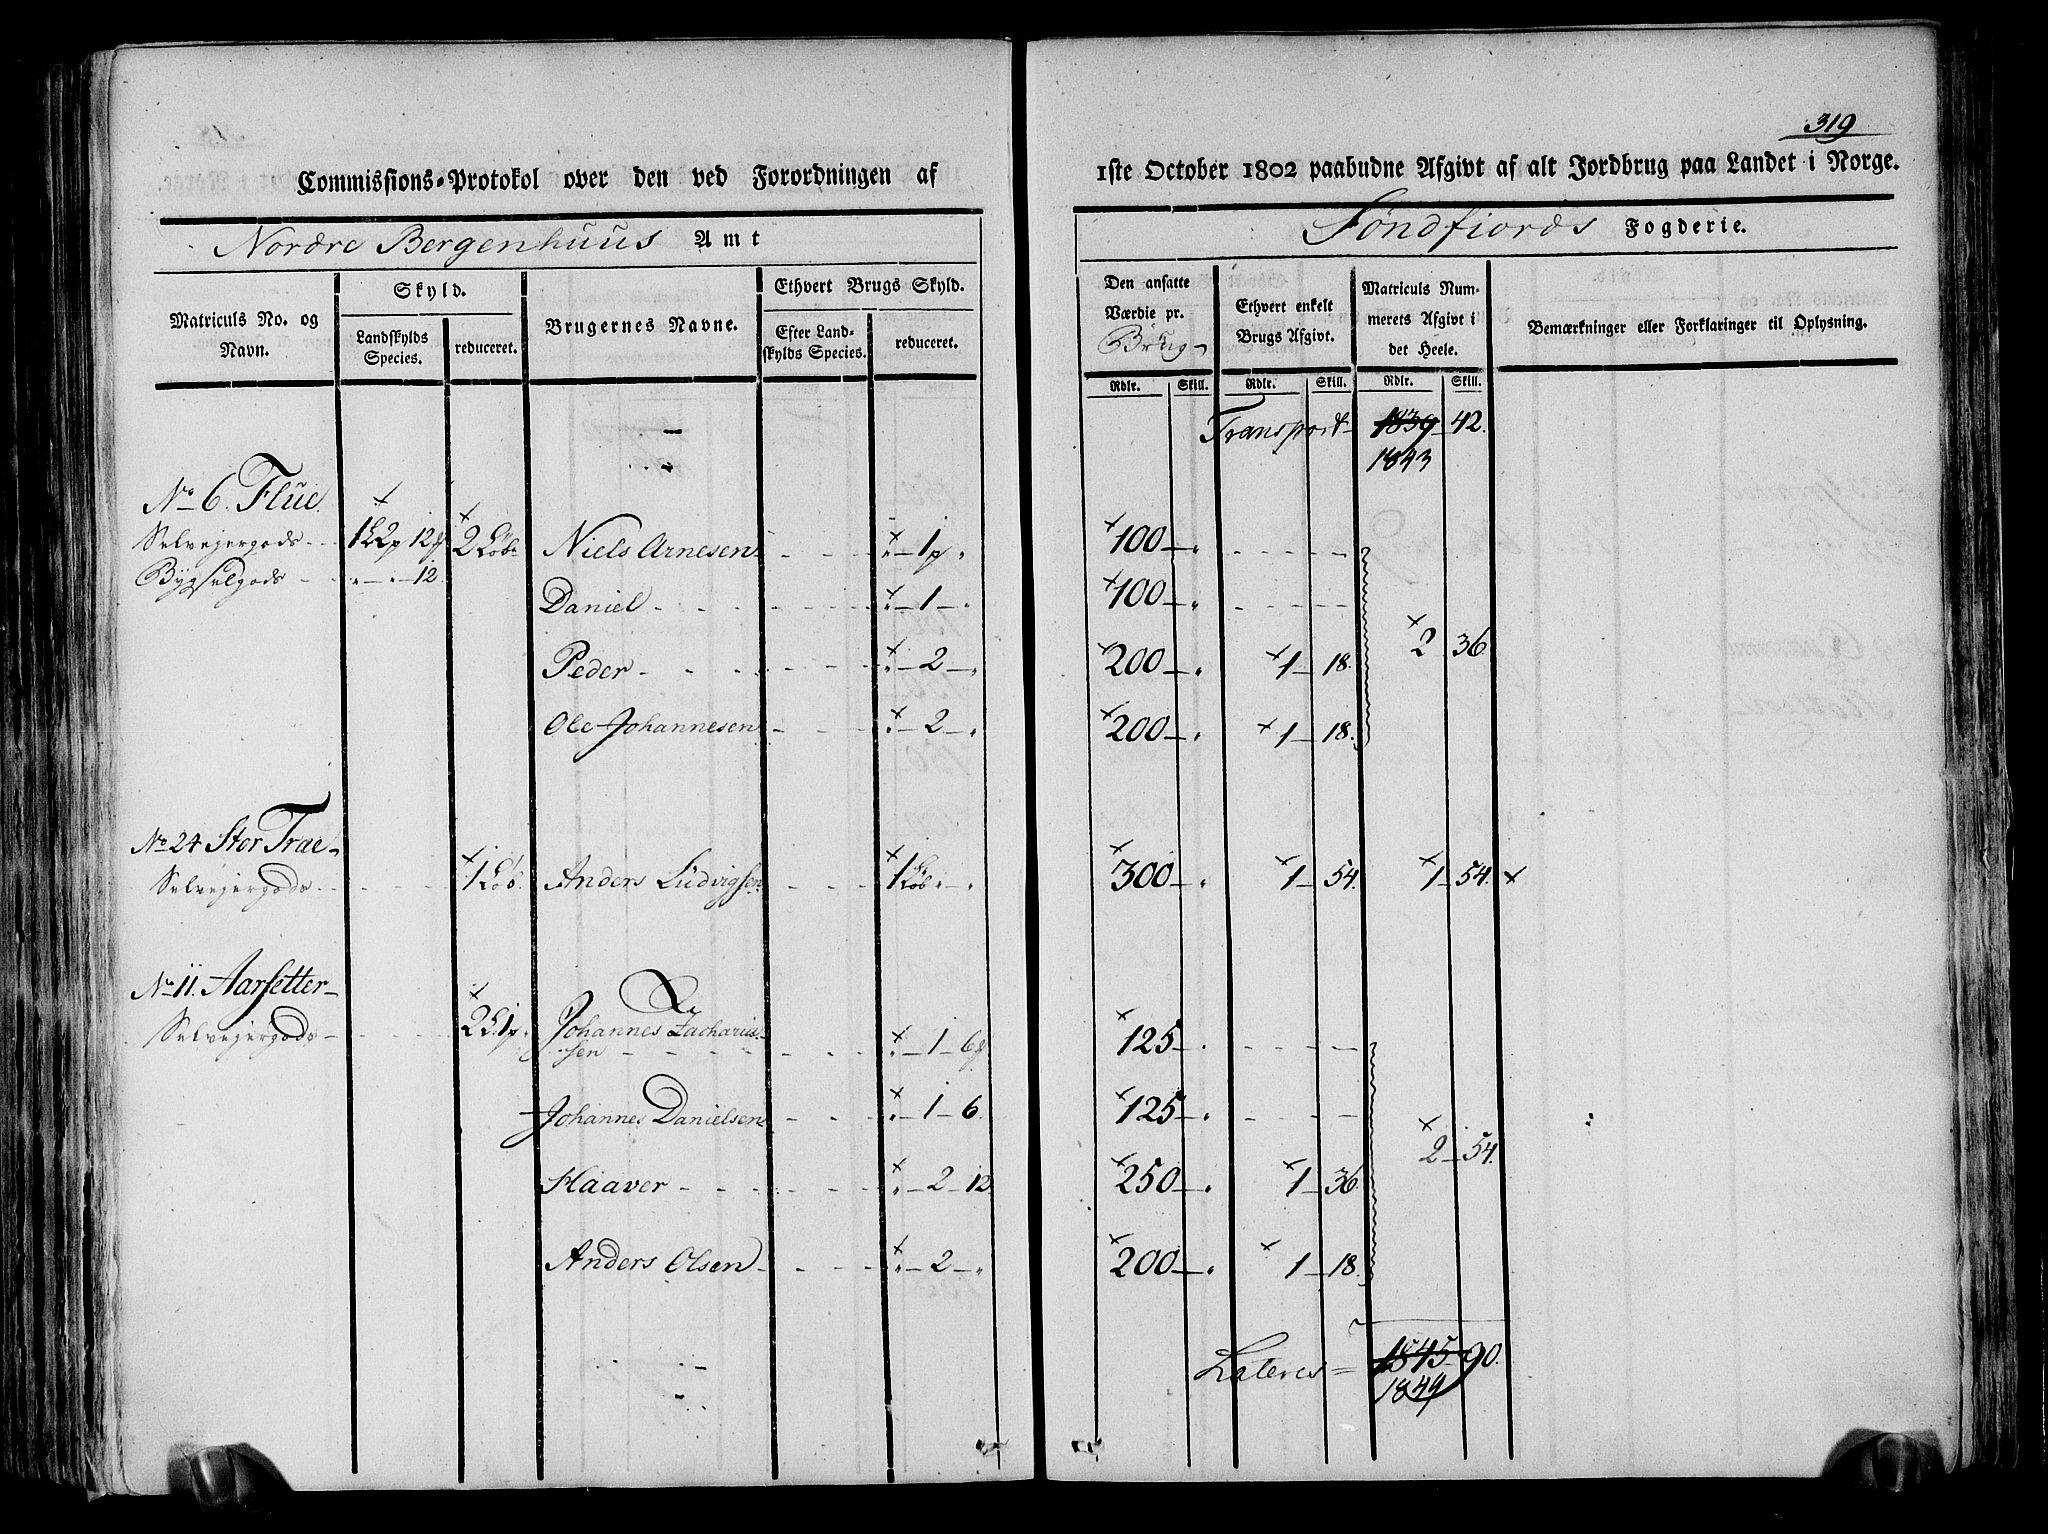 319
Commissions-Protokol over den ved Forordningen af 1ste October 1802 paabudne Afgivt af alt Jordbrug paa Landet i Norge.
Nordre Bergenhuus Amt
Søndfiords Fogderie.
Matriculs No. og Navn.
Skyld.
Landskylds Species.
reduceret.
Brugernes Navne.
Ethvert Brugs Skyld.
Efter Landskylds Species.
reduceret.
Den ansatte Værdie pr. Brug
Ethvert enkelt Brugs Afgivt.
Matriculs Nummerets Afgivt i det Heele.
Bemærkninger eller Forklaringer til Oplysning.
Rdlr. Skill. Rdlr. Skill. Rdlr. Skill.
Transport 1839 42.
1843
No 6. Flue
Selvejergods 12 2 Løb Niels Arnesen 1 100
Bygselgods 12
Daniel 1 100
Peder 2 200 1 18. 2 36.
Ole Johannesen 2 200 1 18.
No 24 Stor Træ
Selvejergods 1 Løb. Anders Ludvigsen 1 Løb 300 1 54. 1 54. x
No 11. Aarsetter
Selvejergods Johannes Zachariassen 1 6 125
Johannes Danielsen 1 6. 125
Haaver 2 12 250 1 36 2 54.
Anders Olsen 2 200 1 18.
Lateres 1845 90.
1849